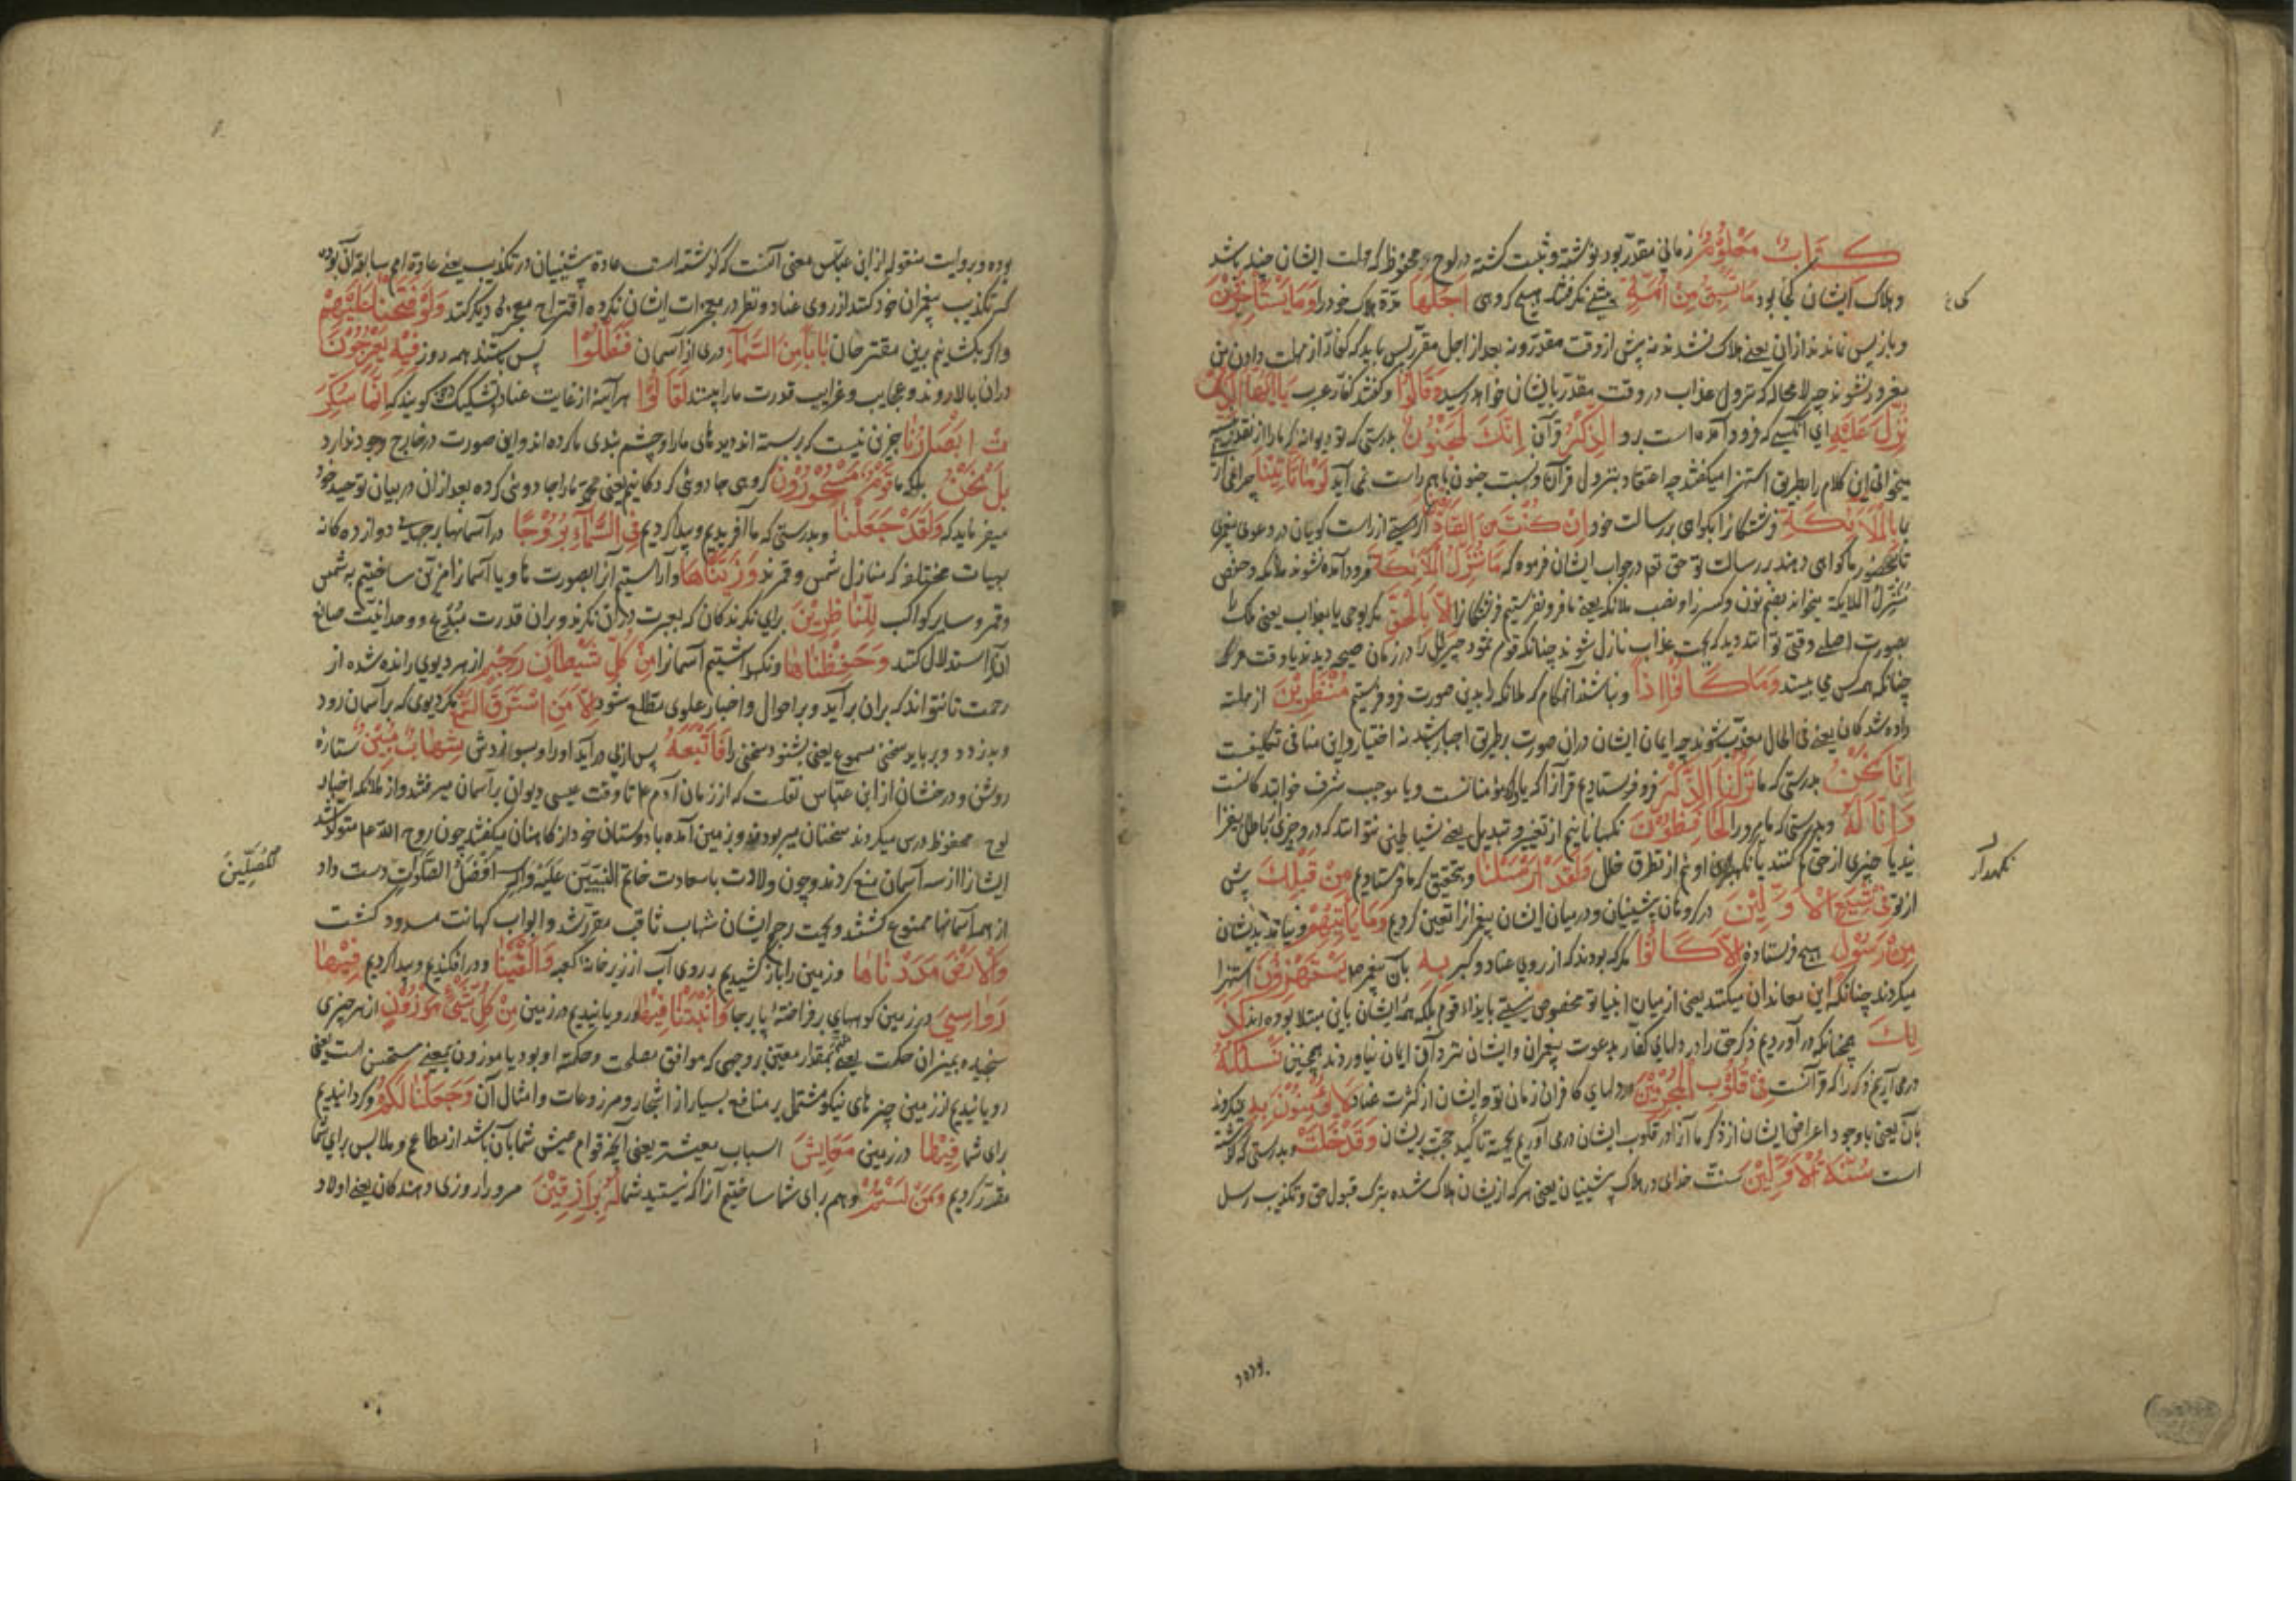 كتاب معلوم زمانی مقدر بود نوشته و ثبت کشته در لوح محفوظ که مهلت ایشان چند باشد
و هلاک ایشان کی بود ما تسبق من امة پیشی نکرفته هیچ کروهی اجلها مدة هلاک خود را و ما یستأخرون
و باز پس نماندند ازان یعنی هلاک نشدند نه پیش از وقت مقدر و نه بعد از اجل مقرر پس باید که کفار از مهلت دادن من
مغرور نشوند چه لا محاله که نزول عذاب در وقت مقدر بایشان خواهد رسید و قالوا و کفتند کفار عرب یا ایها الذی
نزل علیه ای آنکسی که فرود آمده است برو الذکر قرآن انک لمجنون بدرستی که تو دیوانه که ما را از نقد بنسیه
میخوانی این کلام را بطریق استهزا میکفتند چه اعتقاد بنزول قرآن و نسبت جنون با هم راست نمی آید لو ما تأتینا چرا نمی آری
بما بالملائکة فرشتکانرا بکواهی رسالت خود ان کنت من الصادقین اکر هستی از راست کویان در دعوی پیغمبری
تا بحضور ما کواهی دهند بر رسالت تو حق تع در جواب ایشان فرموده که ما تنزل الملائکة فرود آمده نشوند ملائکه و حفص
ننزل الملائکة میخواند بضم نون و کسر زا و نصب ملائکه یعنی ما فرو نفرستیم فرشتکانرا الا بالحق مکر بوحی یا بعذاب یعنی ملک را
بصورت اصلی وقتی توانند دید که بجهت عذاب نازل شوند چنانکه قوم ثمود جبرئیل را در زمان صیحه دیدند یا وقت مرک
چنانکه همه کس می بیند و ما کانوا اذا و نباشند آنهنکام که ملائکه را بدین صورت فرو فرستیم منظرین از مهلت
داده شدکان یعنی فی الحال معذب شوند چه ایمان ایشان دران صورت بطریق اجبار باشد نه اختیار و این منافی تکلیفست
انا نحن بدرستی که ما نزلنا الذکر فرو فرستادیم قرآنرا که یاد کردن مؤمنانست و یا موجب شرف خوانندکانست
و انا له و بدرستی که ما مرورا لحافظون نکهبانانیم از تغییر و تبدیل یعنی شیاطین نتوانند که درو چیزی باطل بیفزا
یند یا چیزی از حق کم کنند یا نکهبان اوئیم از تطرق خلل و لقد ارسلنا و بتحقیق که ما فرستادیم من قبلک پیش
از تو فی شیع الاولین در کروهان پیشینیان و در میان ایشان پیغمبرانرا تعیین کردیم و ما یأتیهم و نیامد بدیشان
من رسول هیچ فرستاده الا کانوا مکر که بودند که از روی عناد و کبر به بآن پیغمبر یستهزؤن استهزا
میکردند چنانکه این معاندان میکنند یعنی از میان انبیا تو مخصوص نیستی بایذاء قوم بلکه همه ایشان باین مبتلا بوده اند کذ
لک همچنانکه در آوردیم ذکر حق را در دلهای کفار بدعوت پیغمبران و ایشان نزد آن ایمان نیاوردند همچنین نسلکه
درمی آریم ذکر را که قرآنست فی قلوب المجرمین در دلهای کافران زمان تو و ایشان از کثرت عناد لا یؤمنون به نمیکروند
بآن یعنی با وجود اعراض ایشان از ذکر ما آنرا در قلوب ایشان درمی آوریم بجهة تأکید حجت بریشان و قد خلت و بدرستی که کذشته
است سنة الاولین سنت خدای در هلاک پیشینیان یعنی هر که ازیشان هلاک شده بترک قبول حق و تکذیب رسل
نکهدار
بوده و بروایت منقوله از ابن عباس معنی آنست که کذشته است عادة پیشینیان در تکذیب یعنی عادة امم سابقه آن بوده
که تکذیب پیغمبران خود کنند از روی عناد و نظر در معجزات ایشان نکرده اقتراح معجزه دیکر کنند و لو فتحنا علیهم
و اکر بکشائیم برین مقترحان بابا من السماء دری از آسمان فظلوا پس باشند همه روز فیه یعرجون
دران بالا روند و عجایب و غرایب قدرت ما را بینند لقالوا هر آینه از غایت عناد و تشکیک کویند که انما سکر
ت ابصارنا جزین نیست که بر بسته اند دیدهای ما را و چشم بندی ما کرده اند و این صورت در خارج وجود ندارد
بل نحن بلکه ما قوم مسحورون کروهی جادوئی کرده کانیم یعنی محمد ما را جادوئی کرده بعد ازان در بیان توحید خود
میفرماید که و لقد جعلنا و بدرستی که ما آفریدیم و پیدا کردیم فی السماء بروجا در آسمانها برجهای دوازده کانه
بهیأت مختلفه که منازل شمس و قمرند و زیناها و آراستیم آنرا بصورت ها و یا آسمانرا مزین ساختیم به شمس
و قمر و سایر کواکب للناظرین برای نکرندکان که بعبرت دران نکرند و بران قدرت مبدع و وحدانیت صانع
آن استدلال کنند و حفظناها و نکهداشتیم آسمانرا من کل شیطان رجیم از هر دیوی رانده شده از
رحمت تا نتواند که بران بر آید و بر احوال و اخبار علوی مطلع شود الا من استرق السمع مکر دیوی که بر آسمان رود
و بدزدد و برباید سخنی مسموع یعنی بشنود سخنی را فاتبعه پس از پی در آید او را و بسوزدش شهاب مبین ستاره
روشن و درخشان از ابن عباس نقلست که از زمان آدم ع تا وقت عیسی دیوان بر آسمان میرفتند و از ملائکه اخبار
لوح محفوظ درس میکردند سخنان میربودند و بزمین آمده با دوستان خود از کاهنان میکفتند چون روح الله عم متولد شد
ایشانرا از سه آسمان منع کردند و چون ولادت با سعادت خاتم النبیین علیه و آله افضل الصلوات دست داد
المصلین
از همه آسمانها ممنوع کشتند و بجهت رجم ایشان شهاب ثاقب مقرر شد و ابواب کهانت مسدود کشت
و الارض مددناها و زمین را باز کشیدیم بر روی آب از زیر خانه کعبه و القینا و در افکندیم و پیدا کردیم فیها
رواسی در زمین کوههای برافراخته پا برجا و انبتنا فیها و رویانیدیم در زمین من کل شیء موزون از هر چیزی
سنجیده بمیزان حکمت یعنی بمقدار معین بر وجهی که موافق مصلحت و حکمة او بود یا موزون بمعنی مستحسن است یعنی
رویانیدیم از زمین چیزهای نیکو مشتمل بر منافع بسیار از اشجار و مزروعات و امثال آن و جعلنا لکم و کردانیدیم
برای شما فیها در زمین معایش اسباب معیشت یعنی آنچه قوام عیش شما بآن باشد از مطاعم و ملابس برای شما
مقدر کردیم و من لستم و هم برای شما ساختیم آنرا که نیستید شما له برازقین مرورا روزی دهندکان یعنی اولاد